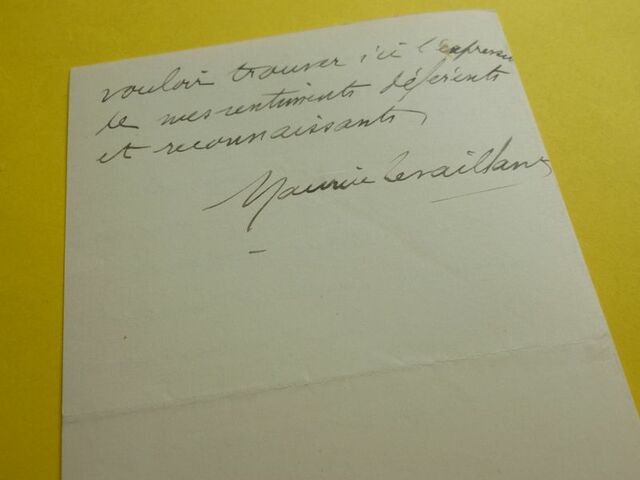 vouloir trouver ici l'expression
de mes sentiments déférents
et reconnaissants
Maurice Levaillant